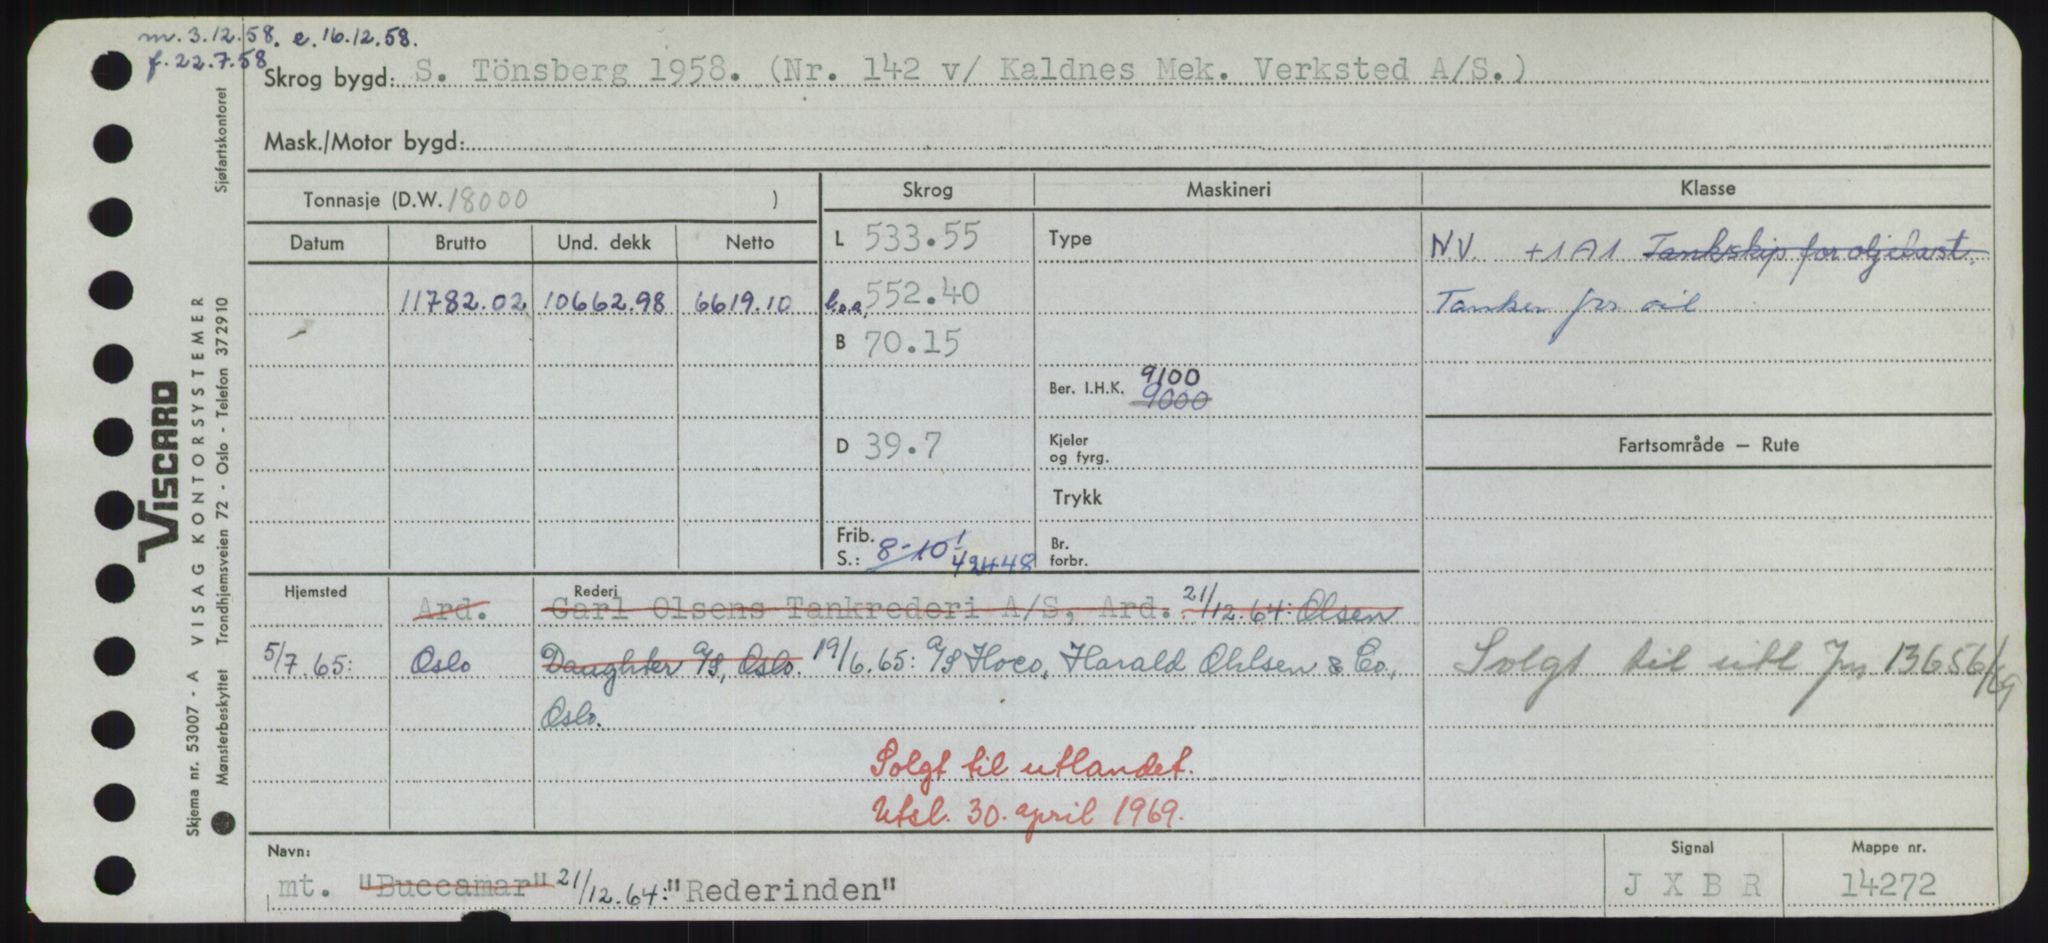 m. 3.12.58. e. 16.12.58.
f. 22.7.58
Skrog bygd: S. Tönsberg 1958. (Nr. 142 v/ Kaldnes Mek. Verksted A/S.)
Mask./Motor bygd:
Tonnasje (D.W. 18000 )
Skrog
Maskineri
Klasse
Datum
Brutto
Und. dekk
Netto
11782.02
10662.98
6619.10
L 533.55
l.o.a. 552.40
B 70.15
D 39.7
Frib.
S.: 8-10 1/4 2448
Type
Ber. I.H.K. 9100
9000
Kjeler
og fyrg.
Trykk
Br.
forbr.
NV. +1A1 Tankskip for oljelast.
Tanker for oil
Fartsområde — Rute
Solgt til utl Jnr 13656/69
Hjemsted
Rederi
Ard. Carl Olsens Tankrederi A/S, Ard. 21/12.64: Olsen
5/7.65: Oslo Daughter A/S, Oslo. 19/6.65: A/S Hoco, Harald Ohlsen & Co.,
Oslo.
Solgt til utlandet.
Utsl. 30. april 1969.
Navn:
mt. "Buccamar" 21/12.64: "Rederinden"
Signal
JXBR
Mappe nr.
14272
VISCARD
VISAG KONTORSYSTEMER
Skjema nr. 53007 - A
Mønsterbeskyttet Trondhjemsveien 72 - Oslo - Telefon 372910
Sjøfartskontoret